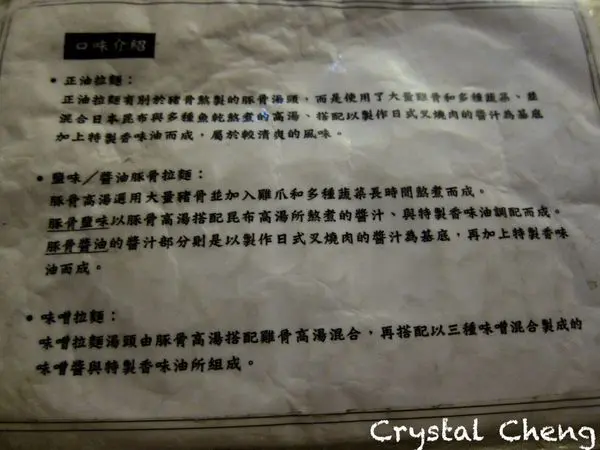 口味介紹
• 正油拉麵：
正油拉麵有別於豬骨熬製的豚骨湯頭，而是使用了大量雞骨和多種蔬菜、並
混合日本昆布與多種魚乾熬煮的高湯、搭配以製作日式叉燒肉的醬汁為基底
加上特製香味油而成，屬於較清爽的風味。
• 鹽味／醬油豚骨拉麵：
豚骨高湯選用大量豬骨並加入雞爪和多種蔬菜長時間熬煮而成。
豚骨鹽味以豚骨高湯搭配昆布高湯所熬煮的醬汁、與特製香味油調配而成。
豚骨醬油的醬汁部分則是以製作日式叉燒肉的醬汁為基底，再加上特製香味
油而成。
• 味噌拉麵：
味噌拉麵湯頭由豚骨高湯搭配雞骨高湯混合，再搭配以三種味噌混合製成的
味噌醬與特製香味油所組成。
Crystal Cheng